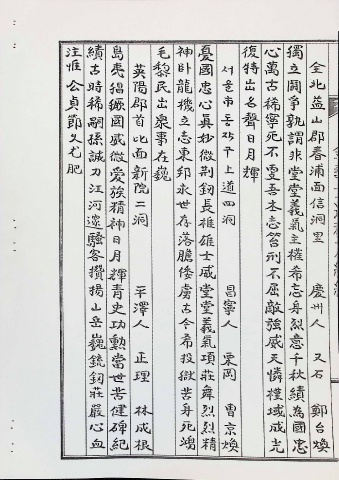 全北益山郡春浦面信洞里 慶州人 又石 鄭台煥
獨立鬪爭孰謂非堂堂義氣主權希志身烈意千秋績為國忠
心萬古稀寧死不受吾本志笞刑不屈敵強威天憐樸域咸光
復特出名聲日月輝
서울市동작구上道四洞 昌寧人 雯岡 曺京煥
憂國忠心眞妙微荊釰長雄士威堂堂義氣項莊舞烈烈精
神卧龍機立志東邦永世存落膽倭虜古今希投獄苦身死鴻
毛黎民出衆事在巍
英陽郡首比面新院二洞 平澤人 正理 林成根
島夷猖獗國威微愛族精神日月輝青史功勳當世苦健碑紀
績古時稀嗣孫誠刀江河邃騷客攢揚山岳巍銃釰莊嚴心血
注惟公貞節久尤肥